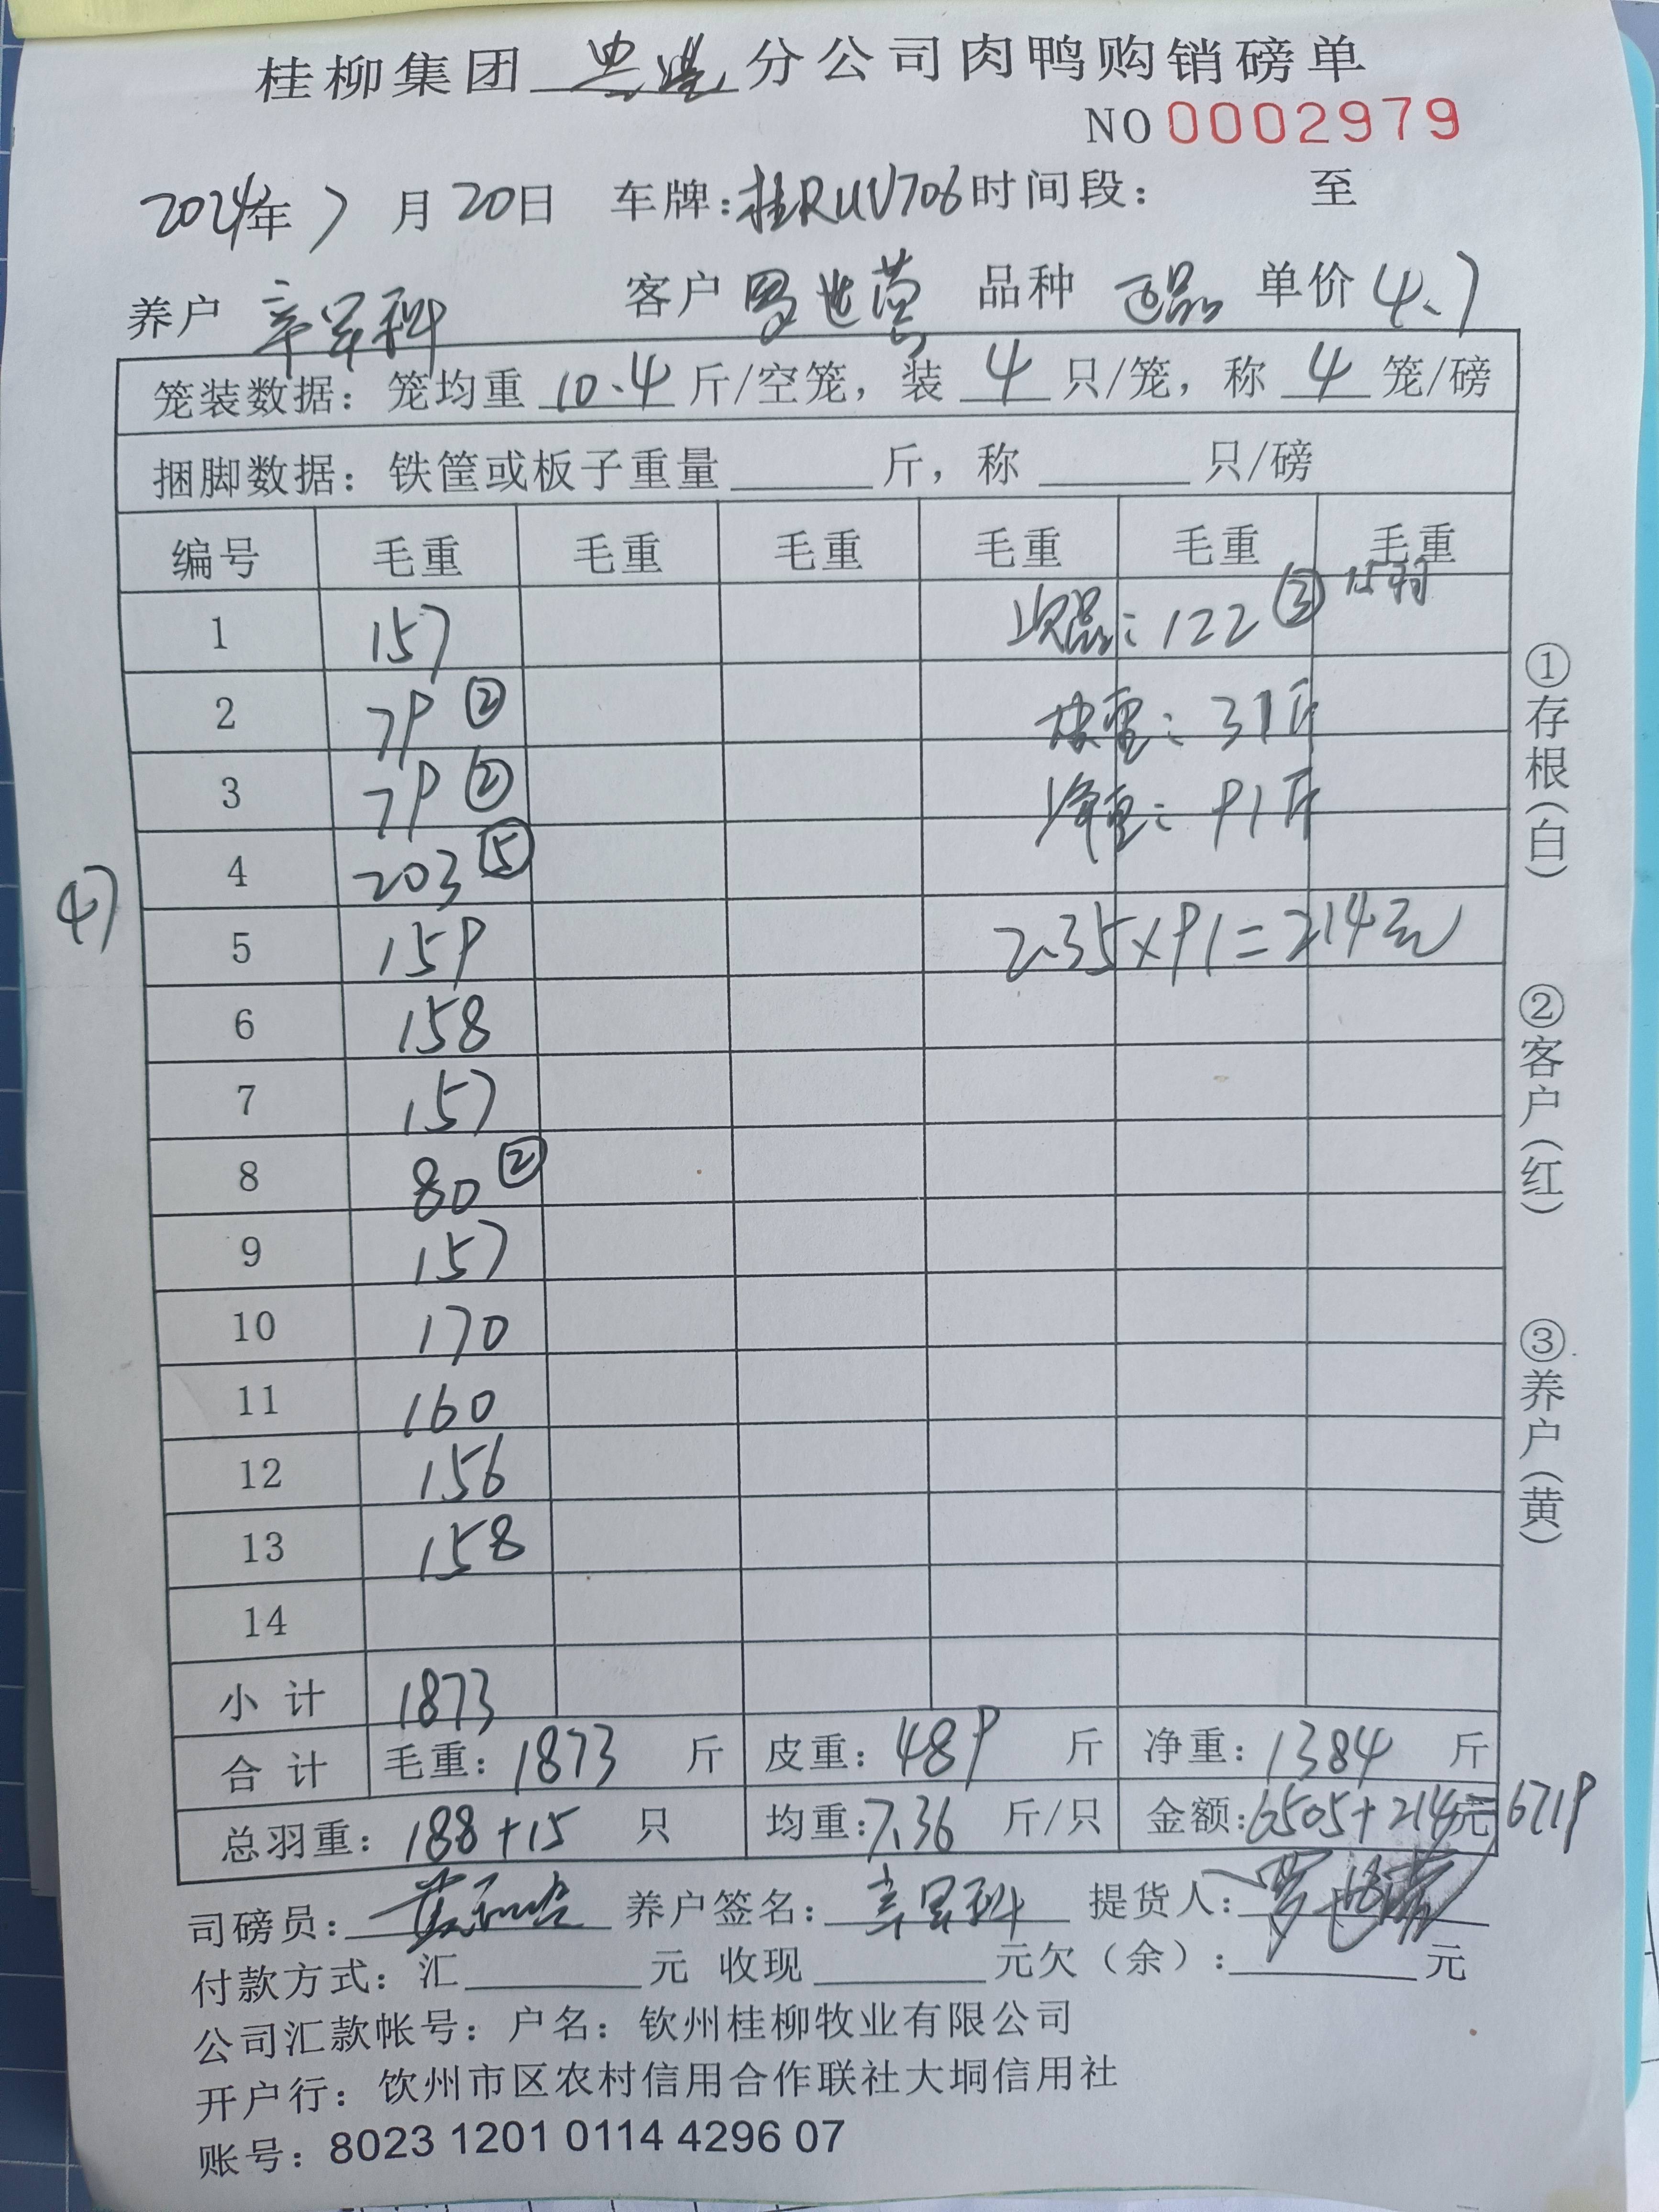 桂柳集团 分公司肉鸭购销磅单
NO 0002979
2024年 7 月 20日 车牌:桂RUV706 时间段: 至
养户 辛军科 客户 罗世茂 品种 正品 单价 4.7
笼装数据: 笼均重 10.4 斤/空笼, 装 4 只/笼, 称 4 笼/磅
捆脚数据: 铁筐或板子重量 斤, 称 只/磅
编号 毛重 毛重 毛重 毛重 毛重 毛重
1 157 次品: 122 ③ 15羽
2 79 ② 皮重: 31斤
3 79 ② 净重: 91斤
4 203 ⑤
47
5 159 2.35×91=214元
6 158
7 157
8 80 ②
9 157
10 170
11 160
12 156
13 158
14
小 计 1873
合 计 毛重: 1873 斤 皮重: 489 斤 净重: 1384 斤
总羽重: 188+15 只 均重: 7.36 斤/只 金额: 6505+214元=6719
司磅员: 养户签名: 辛军科 提货人: 罗世茂
付款方式: 汇 元 收现 元欠(余): 元
公司汇款帐号: 户名: 钦州桂柳牧业有限公司
开户行: 钦州市区农村信用合作联社大垌信用社
账号: 8023 1201 0114 4296 07
①存根(白)
②客户(红)
③养户(黄)